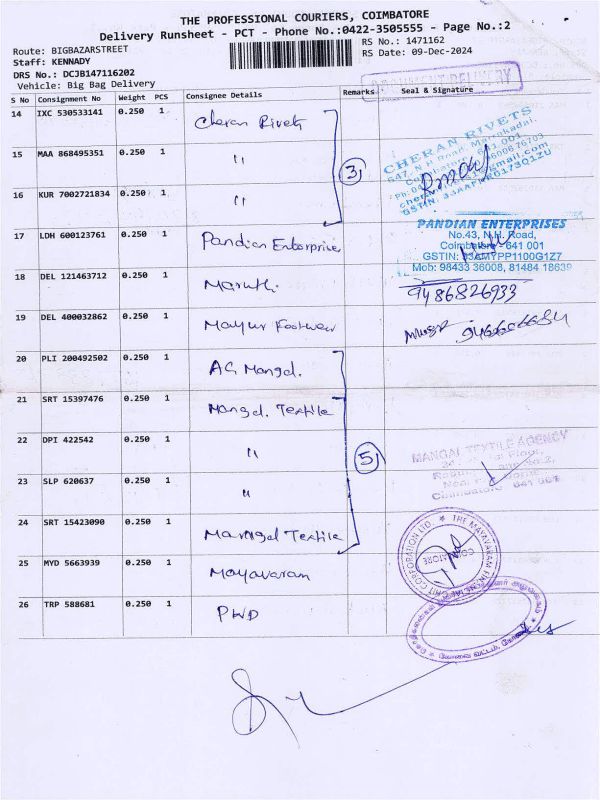 THE PROFESSIONAL COURIERS, COIMBATORE
Delivery Runsheet - PCT - Phone No.:0422-3505555 - Page No.:2
Route: BIGBAZARSTREET
RS No.: 1471162
Staff: KENNADY
RS Date: 09-Dec-2024
DRS No.: DCJB147116202
Vehicle: Big Bag Delivery
DELIVERY
S No Consignment No Weight PCS Consignee Details Remarks Seal & Signature
14 IXC 530533141 0.250 1 Cheran Rivets
CHERAN RIVETS
15 MAA 868495351 0.250 1 "
3
16 KUR 7002721834 0.250 1 "
17 LDH 600123761 0.250 1 Pandian Enterprises
PANDIAN ENTERPRISES
No.43, N.H. Road,
Coimbatore - 641 001
GSTIN: 33AMYPP1100G1Z7
Mob: 98433 36008, 81484 18639
18 DEL 121463712 0.250 1 Maruthi
9486826933
19 DEL 400032862 0.250 1 Mayur Footwear
20 PLI 200492502 0.250 1 AG Mangal.
21 SRT 15397476 0.250 1 Mangal. Textile
22 DPI 422542 0.250 1 "
5
MANGAI TEXTILE AGENCY
Floor,
Coimbatore 641 001
23 SLP 620637 0.250 1 "
24 SRT 15423090 0.250 1 Mangal Textile
25 MYD 5663939 0.250 1 Mayavaram
THE MAYAVARAM FINANCIAL
CORPORATION LTD.
26 TRP 588681 0.250 1 PWD
கோவை வட்டம்,